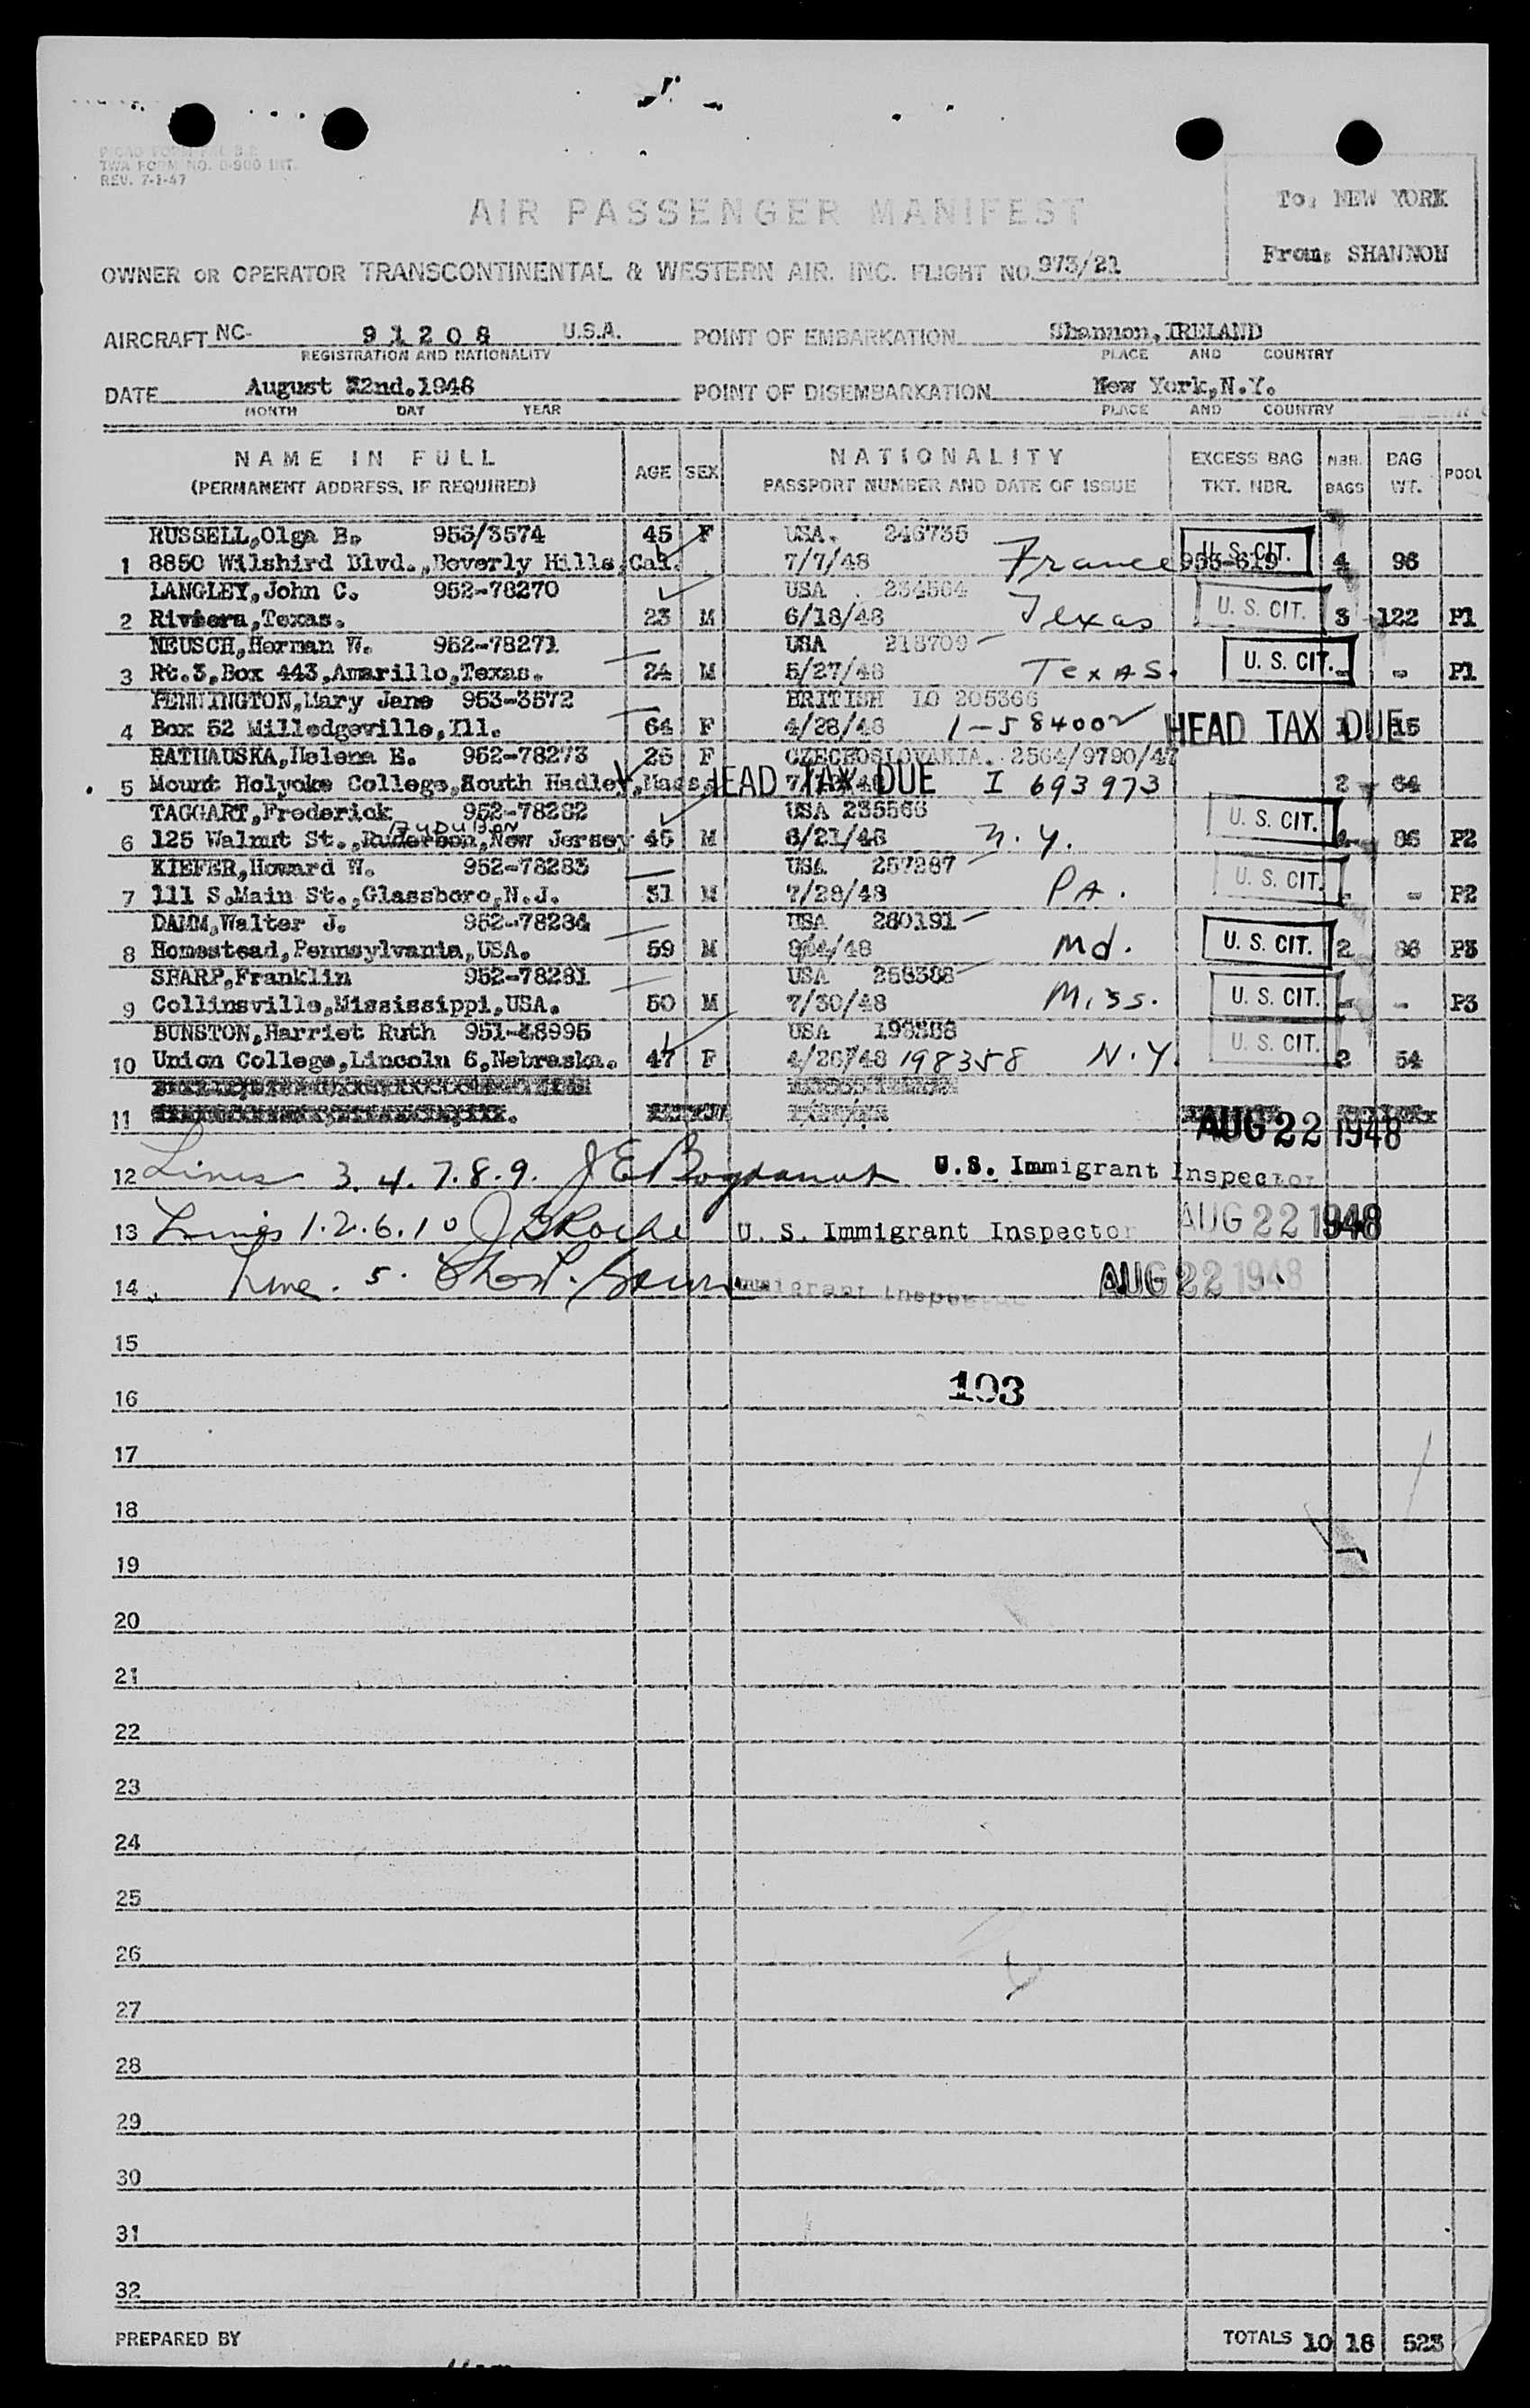 TWA FORM NO. 0-900 INT.
REV. 7-1-47
To: NEW YORK
From: SHANNON
AIR PASSENGER MANIFEST
OWNER OR OPERATOR TRANSCONTINENTAL & WESTERN AIR. INC. FLIGHT NO. 973/21
AIRCRAFT NC- 91208 U.S.A. POINT OF EMBARKATION Shannon, IRELAND
REGISTRATION AND NATIONALITY PLACE AND COUNTRY
DATE August 22nd.1948 POINT OF DISEMBARKATION New York,N.Y.
MONTH DAY YEAR PLACE AND COUNTRY
NAME IN FULL AGE SEX NATIONALITY EXCESS BAG NBR. BAG POOL
(PERMANENT ADDRESS, IF REQUIRED) PASSPORT NUMBER AND DATE OF ISSUE TKT. NBR. BAGS WT.
RUSSELL,Olga B. 953/3574 45 F USA. 246735 U.S. CIT.
1 8850 Wilshird Blvd.,Beverly Hills,Cal. 7/7/48 France 953-619 4 96
LANGLEY,John C. 952-78270 USA 234564 U. S. CIT.
2 Riviera,Texas. 23 M 6/18/48 Texas 3 122 P1
NEUSCH,Herman W. 952-78271 USA 218709
3 Rt.3,Box 443,Amarillo,Texas. 24 M 5/27/48 TEXAS. U. S. CIT. - - P1
PENNINGTON,Mary Jane 953-3572 BRITISH LO 205366
4 Box 52 Milledgeville,Ill. 64 F 4/28/48 1-584002 HEAD TAX DUE 1 15
RATHAUSKA,Helena E. 952-78273 26 F CZECHOSLOVAKIA. 2564/9790/47
5 Mount Holyoke College,South Hadley,Mass. HEAD TAX DUE I 693973 2 64
TAGGART,Frederick 952-78282 USA 235566 U. S. CIT.
AUDUBON
6 125 Walnut St.,Auderson,New Jersey 46 M 6/21/48 N.Y. 4 86 P2
KIEFER,Howard W. 952-78283 USA 257287 U. S. CIT.
7 111 S.Main St.,Glassboro,N.J. 31 M 7/28/48 PA. - - P2
DAMM,Walter J. 952-78284 USA 260191
8 Homestead,Pennsylvania,USA. 59 M 8/4/48 Md. U. S. CIT. 2 86 P3
SHARP,Franklin 952-78281 USA 258388
9 Collinsville,Mississippi,USA. 50 M 7/30/48 Miss. U. S. CIT. - - P3
BUNSTON,Harriet Ruth 951-48995 USA 198388 U. S. CIT.
10 Union College,Lincoln 6,Nebraska. 47 F 4/20/48 198358 N.Y. 2 54
11 AUG 22 1948
12 Lines 3.4.7.8.9. J E Bogdanoff U.S. Immigrant Inspector
13 Lines 1.2.6.10 J Roche U. S. Immigrant Inspector AUG 22 1948
14 Line. 5. Immigrant Inspector AUG 22 1948
15
16 103
17
18
19
20
21
22
23
24
25
26
27
28
29
30
31
32
PREPARED BY TOTALS 10 18 523